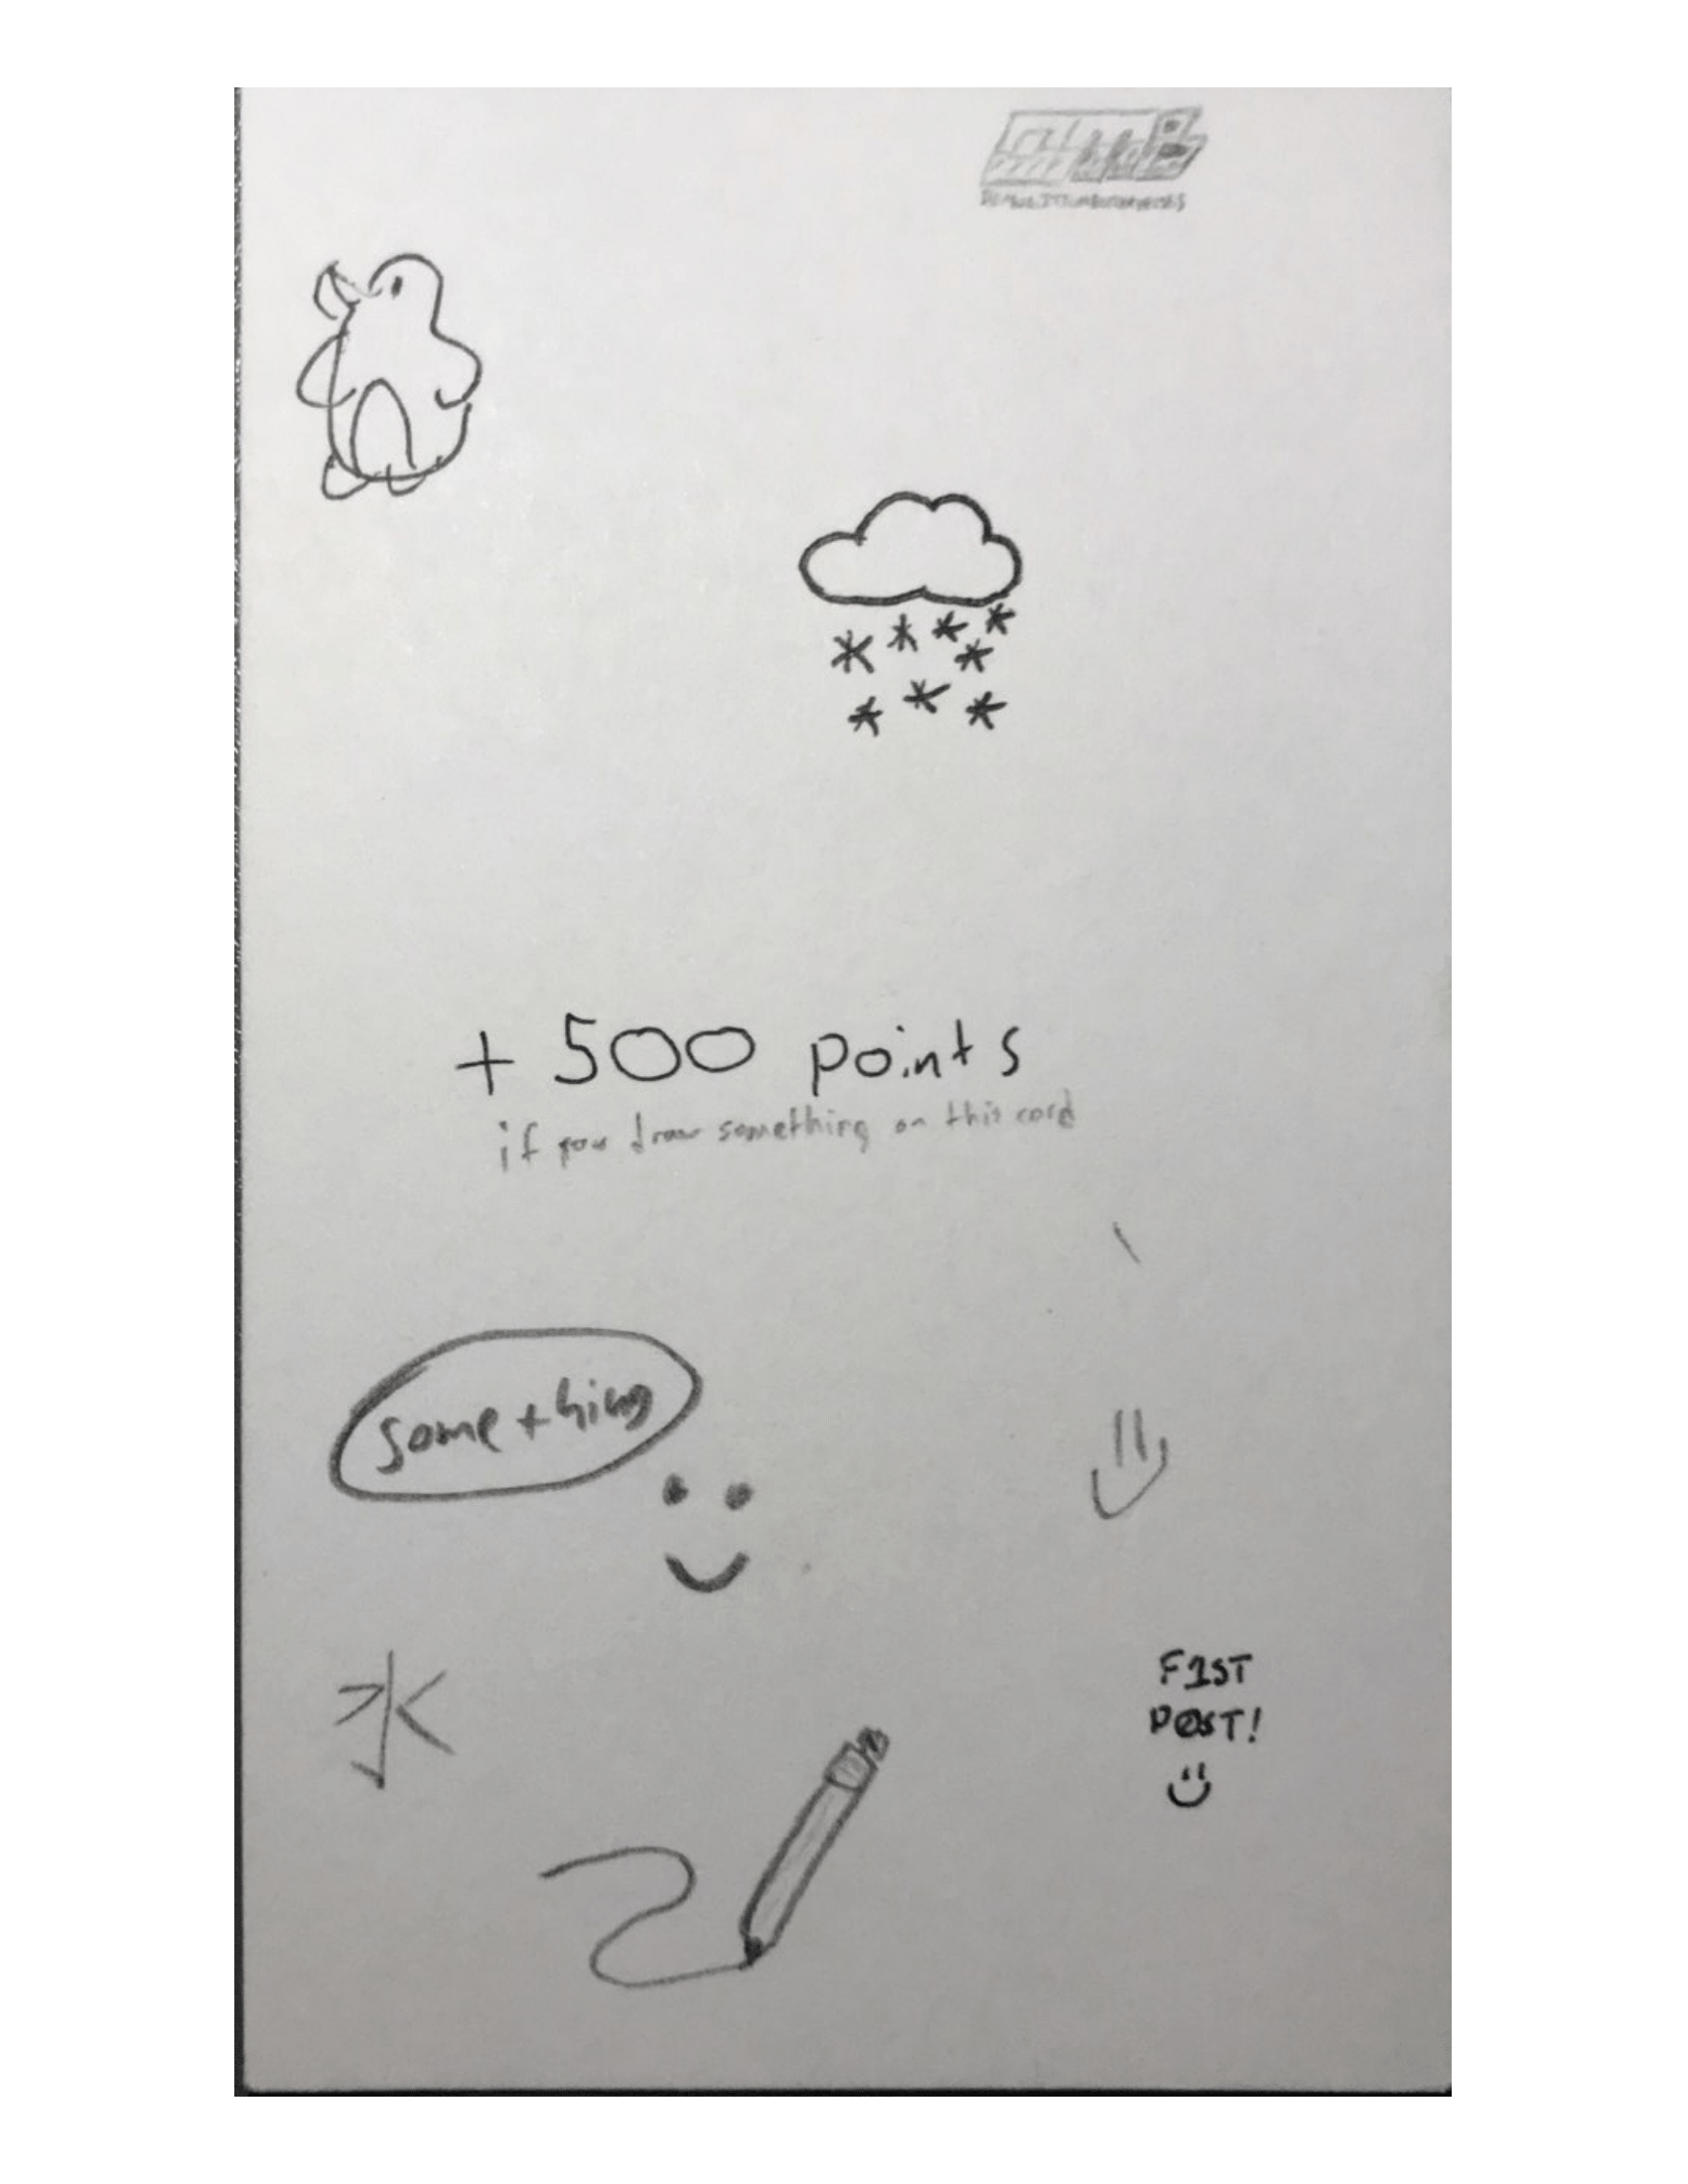 + 500 points
if you draw something on this card
something
水
F1ST
POST!